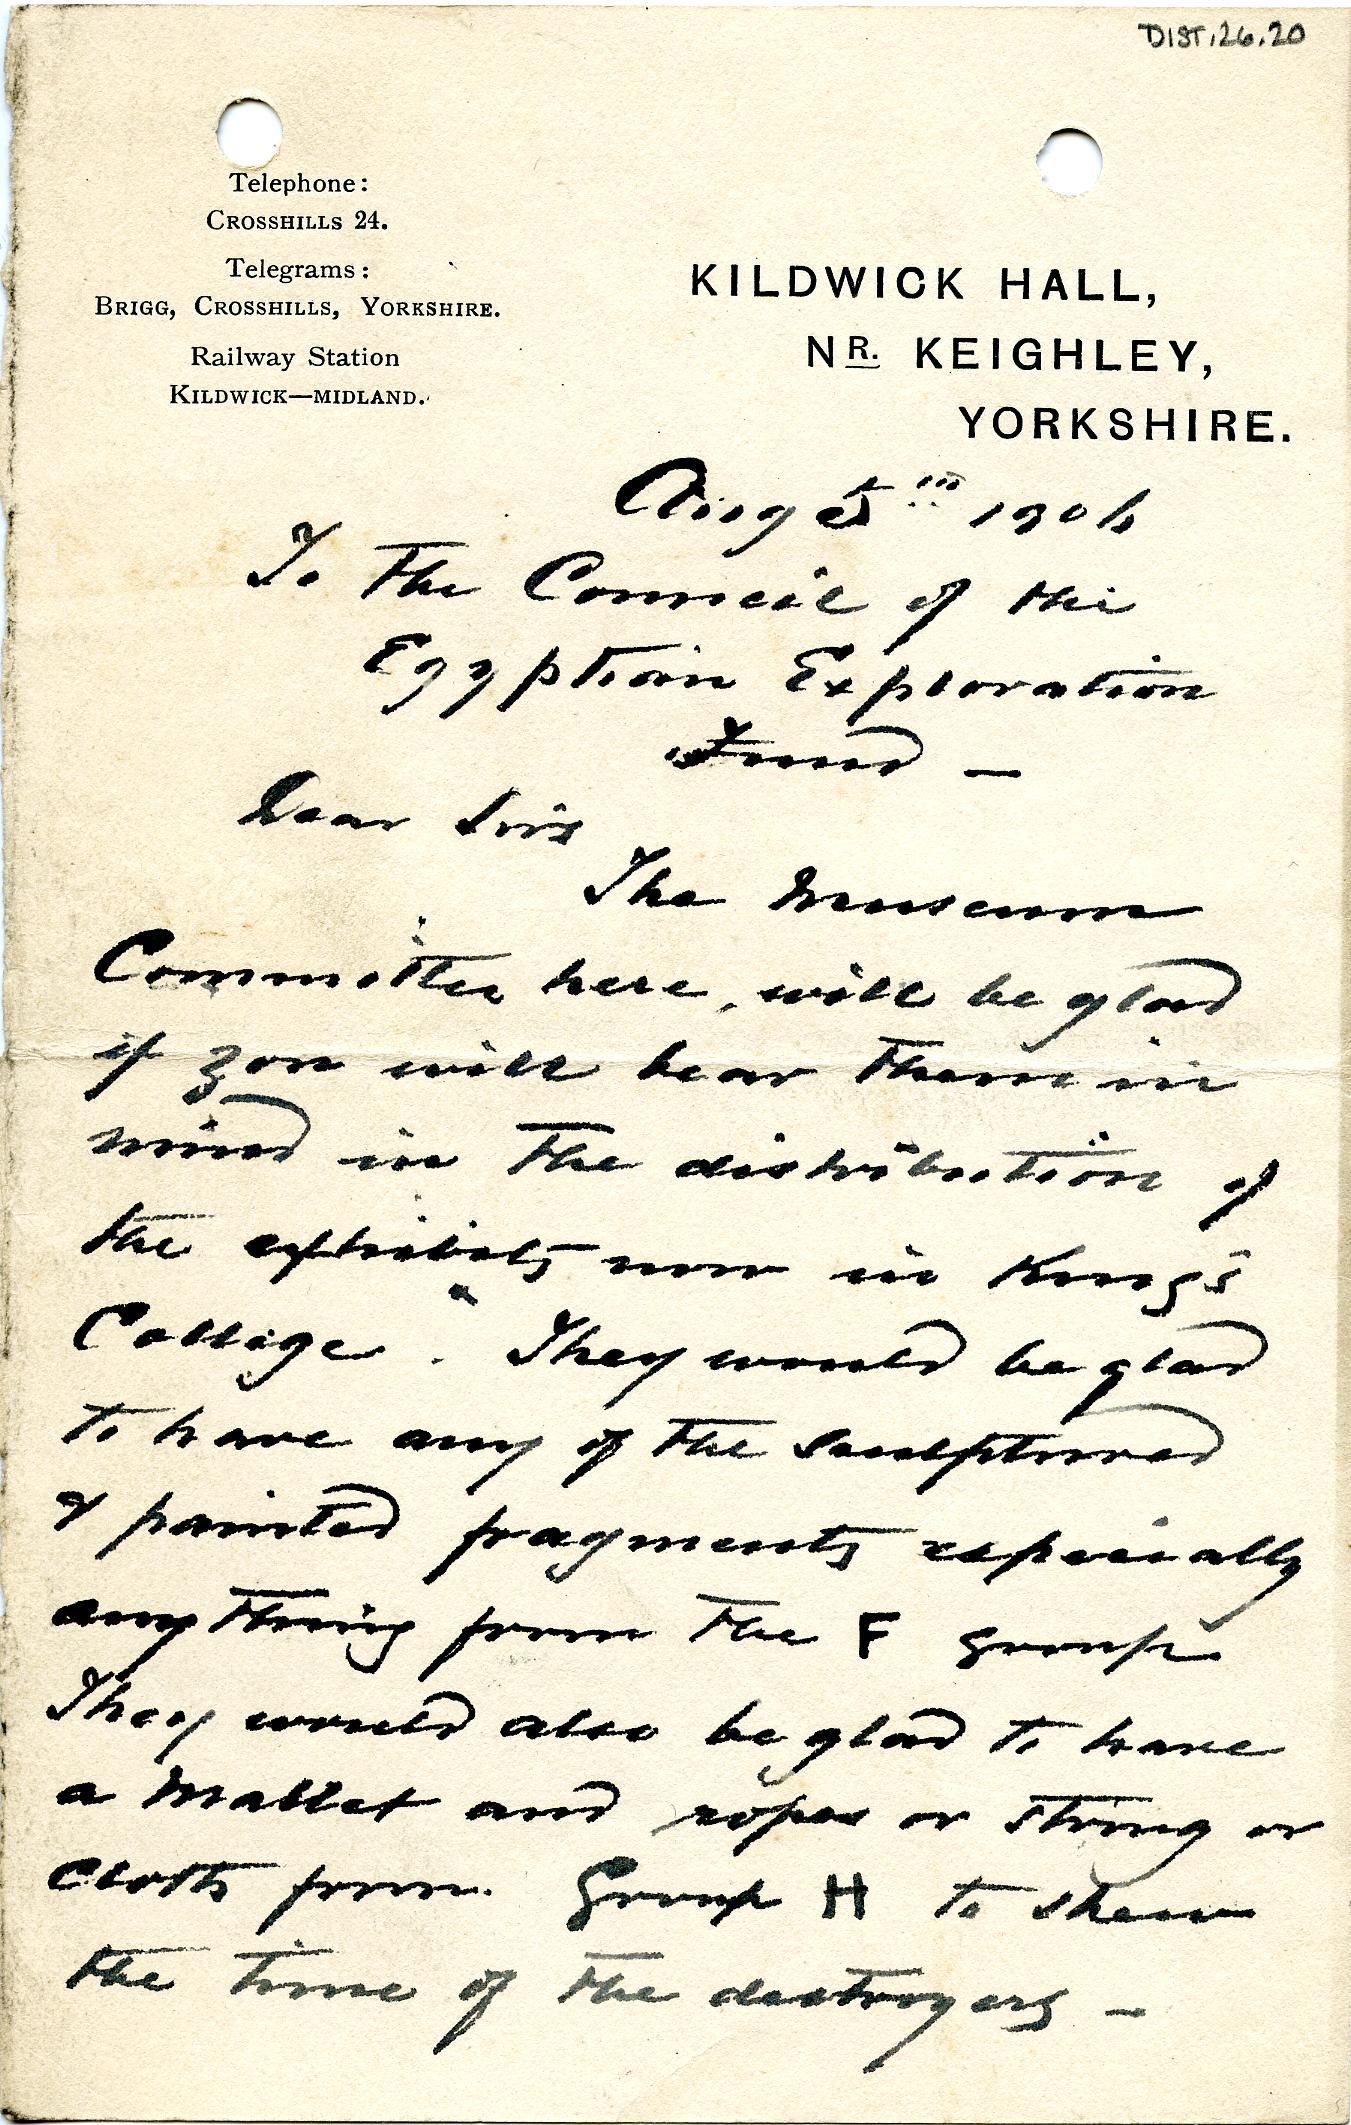 DIST.26.20
Telephone:
CROSSHILLS 24.
Telegrams:
BRIGG, CROSSHILLS, YORKSHIRE.
Railway Station
KILDWICK—MIDLAND.
KILDWICK HALL,
NR. KEIGHLEY,
YORKSHIRE.
Aug 5th 1906
To The Council of the
Egyptian Exploration
Fund —
Dear Sirs
The Museum
Committee here, will be glad
if you will bear them in
mind in the distribution of
the exhibits now in King's
College. They would be glad
to have any of the sculptured
& painted fragments especially
anything from the F group
They would also be glad to have
a Mallet and ropes or string or
cloth from Group H to shew
the time of the destroyers —